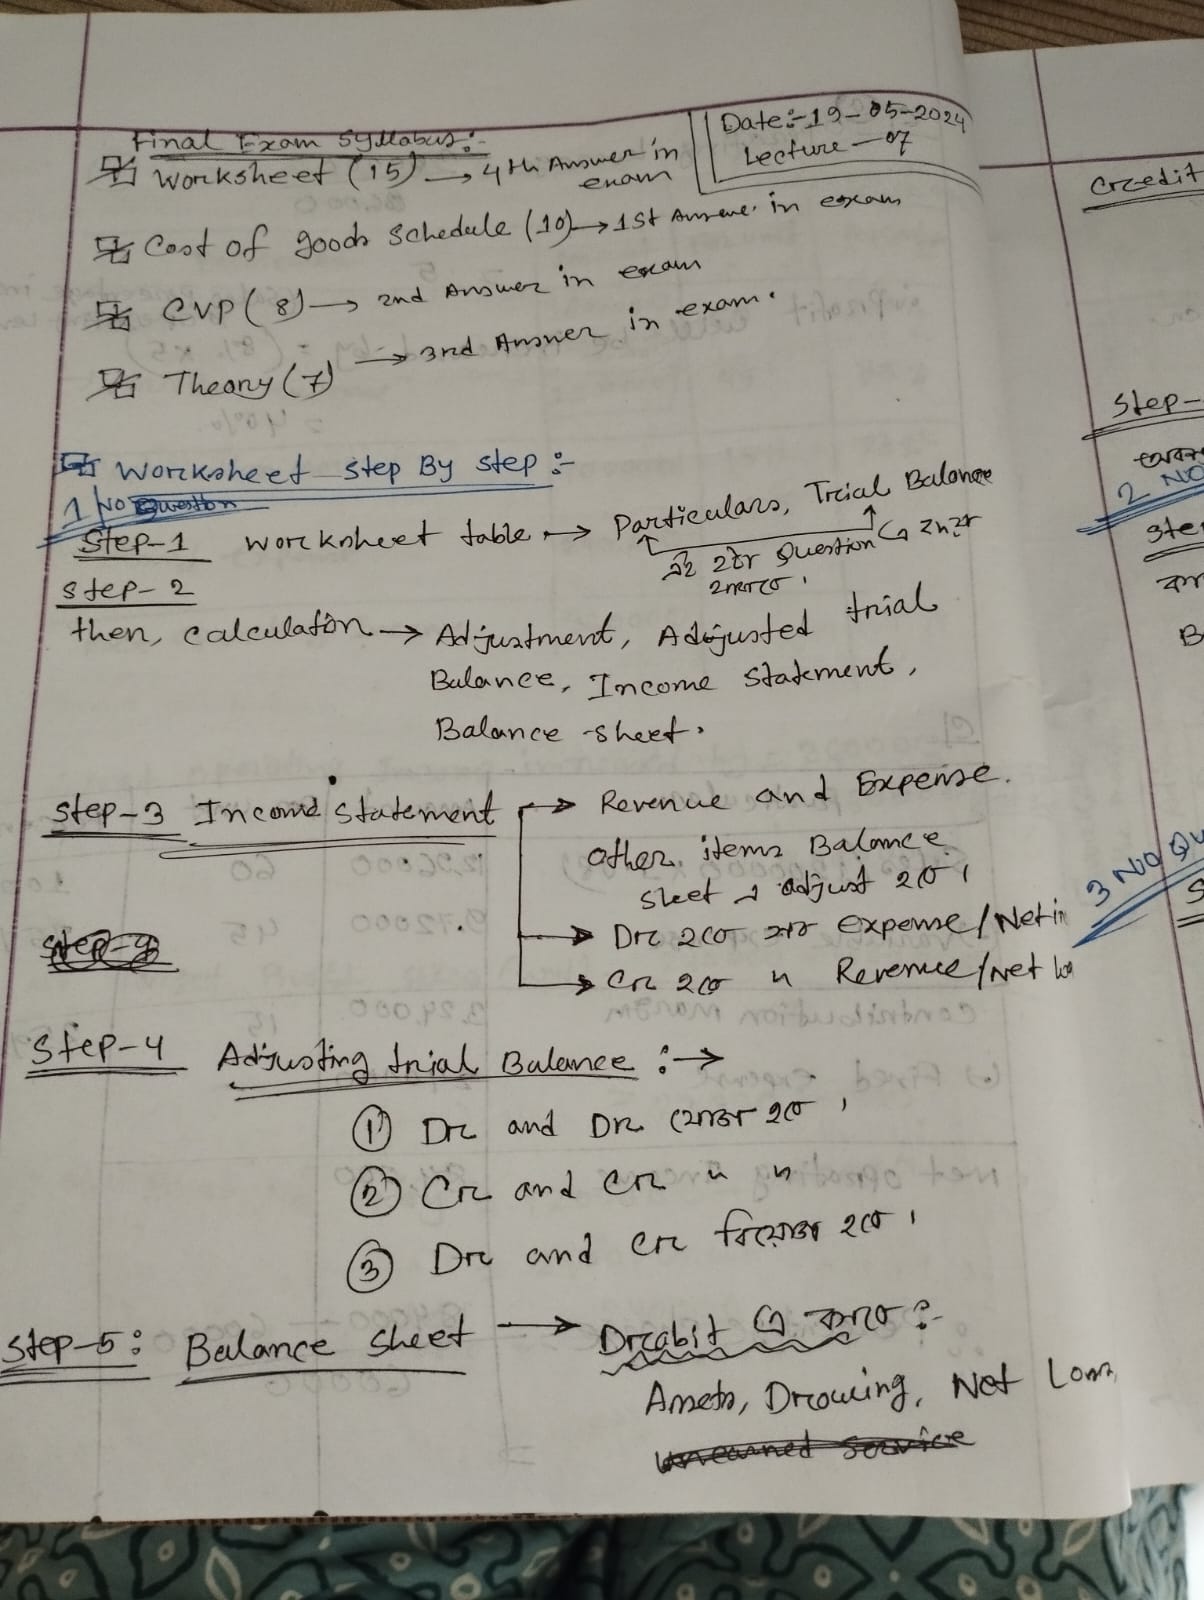 Date:-19-05-2024
Lecture-07
Final Exam Syllabus:-
Worksheet (15) → 4th Answer in exam
Cost of goods Schedule (10) → 1st Answer in exam
CVP (8) → 2nd Answer in exam
Theory (7) → 3rd Answer in exam.
Worksheet step By step :-
1 No Question
Step-1 Worksheet table → Particulars, Trial Balance
Question
Step-2
then, calculation → Adjustment, Adjusted trial
Balance, Income Statement,
Balance sheet.
Step-3 Income Statement → Revenue and Expense.
other items Balance
sheet এ adjust হবে।
→ Dr হলে expense/Net in
→ Cr হলে " Revenue/Net los
Step-4 Adjusting trial Balance :→
① Dr and Dr যোগ হবে।
② Cr and Cr " "
③ Dr and Cr বিয়োগ হবে।
Step-5: Balance sheet → Debit এ বসবে ?-
Assets, Drowing, Net Loss,
Credit
Step-
2 NO
Ste
3 NO QU